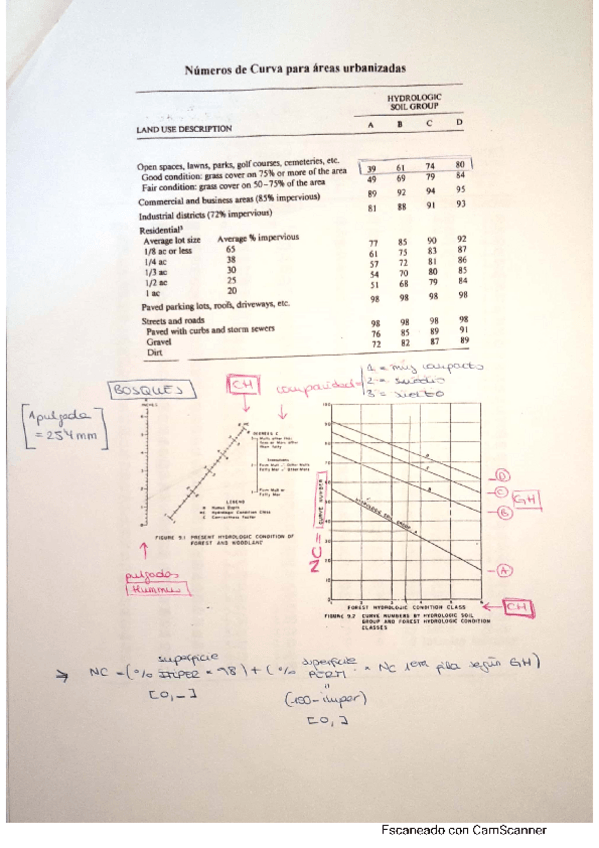 Números de Curva para áreas urbanizadas
HYDROLOGIC
SOIL GROUP
LAND USE DESCRIPTION A B C D
Open spaces, lawns, parks, golf courses, cemeteries, etc.
Good condition: grass cover on 75% or more of the area 39 61 74 80
Fair condition: grass cover on 50-75% of the area 49 69 79 84
Commercial and business areas (85% impervious) 89 92 94 95
Industrial districts (72% impervious) 81 88 91 93
Residential
Average lot size Average % impervious
1/8 ac or less 65 77 85 90 92
1/4 ac 38 61 75 83 87
1/3 ac 30 57 72 81 86
1/2 ac 25 54 70 80 85
1 ac 20 51 68 79 84
Paved parking lots, roofs, driveways, etc. 98 98 98 98
Streets and roads
Paved with curbs and storm sewers 98 98 98 98
Gravel 76 85 89 91
Dirt 72 82 87 89
BOSQUES
CH
1 = muy compacto
2 =
3 =
1 pulgada
= 254 mm
LEGEND
FIGURE 9.1 PRESENT HYDROLOGIC CONDITION OF
FOREST AND WOODLAND
pulgadas
NC =
CURVE NUMBER
HYDROLOGIC SOIL GROUP
D
C
B
A
GH
FOREST HYDROLOGIC CONDITION CLASS
CH
FIGURE 9.2 CURVE NUMBERS BY HYDROLOGIC SOIL
GROUP AND FOREST HYDROLOGIC CONDITION
CLASSES
superficie superficie
NC = (% IMPER * 98) + (% PERM * NC 1era fila según GH)
[0,-] (100-imper)
[0,]
Escaneado con CamScanner